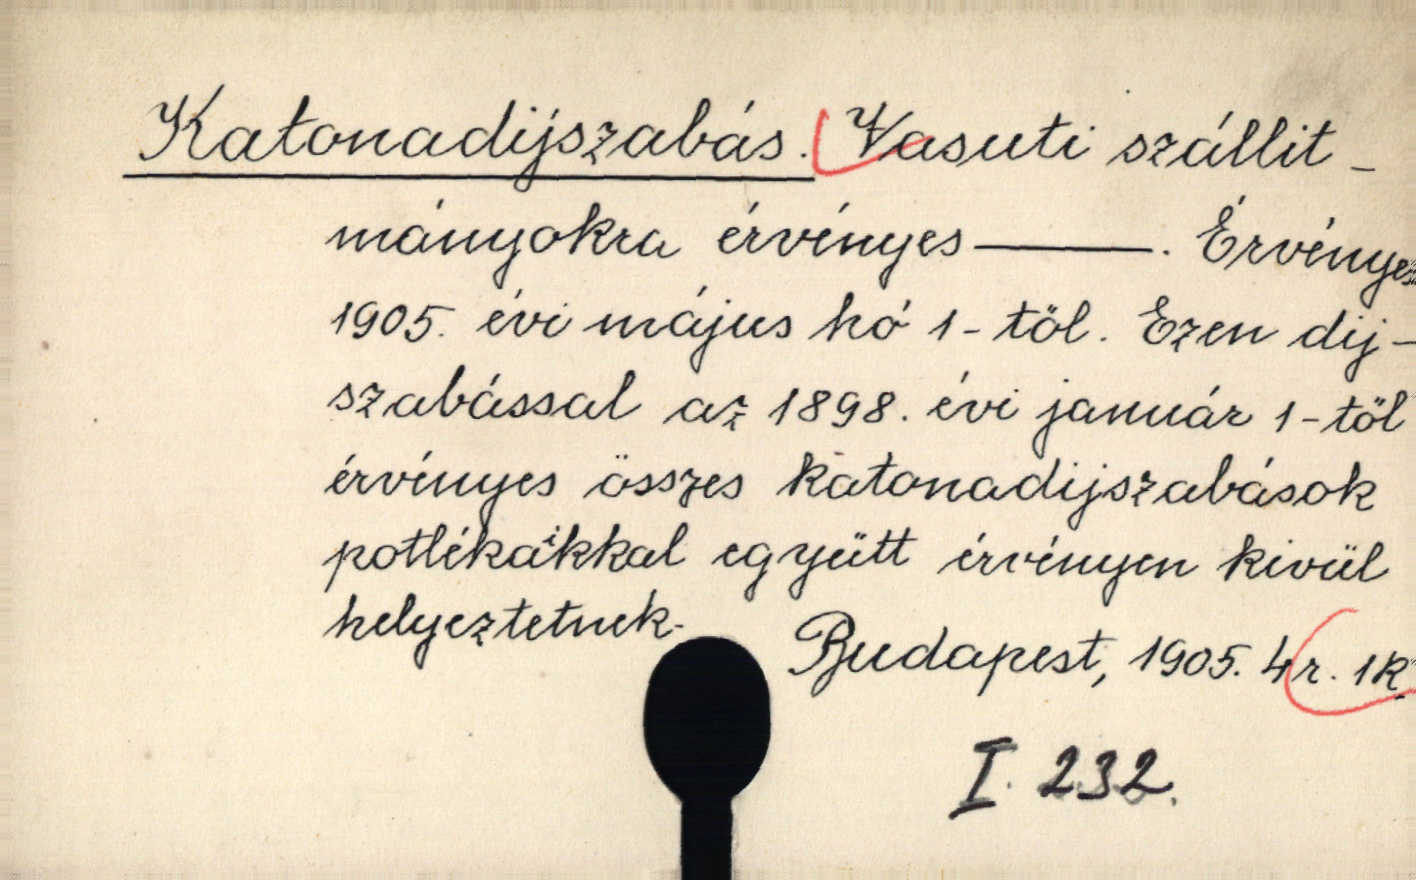 Katonadijszabás. Vasuti szállit-
mányokra érvényes ———. Érvényes
1905. évi május hó 1-töl. Ezen dij-
szabással az 1898. évi január 1-töl
érvényes összes katonadijszabások
potlékaikkal együtt érvényen kivül
helyeztetnek.
Budapest, 1905. 4r. 1k
I. 232.